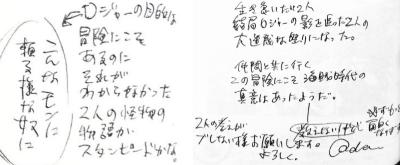 こんなモンに
頼る様な奴に
←Dジャーの目的は
冒険にこそ
あるのに
それが
わからなかった
2人の怪物の
物語が
スタンピードかな。
生き急いだ2人
結局Dジャーの影を追った2人の
大迷惑な祭りになった。
仲間と共に行く
この冒険にこそ海賊時代の
真意はあったようだ。
教えないけど
2人の考えが
ブレない様お願いします。
よろしく。